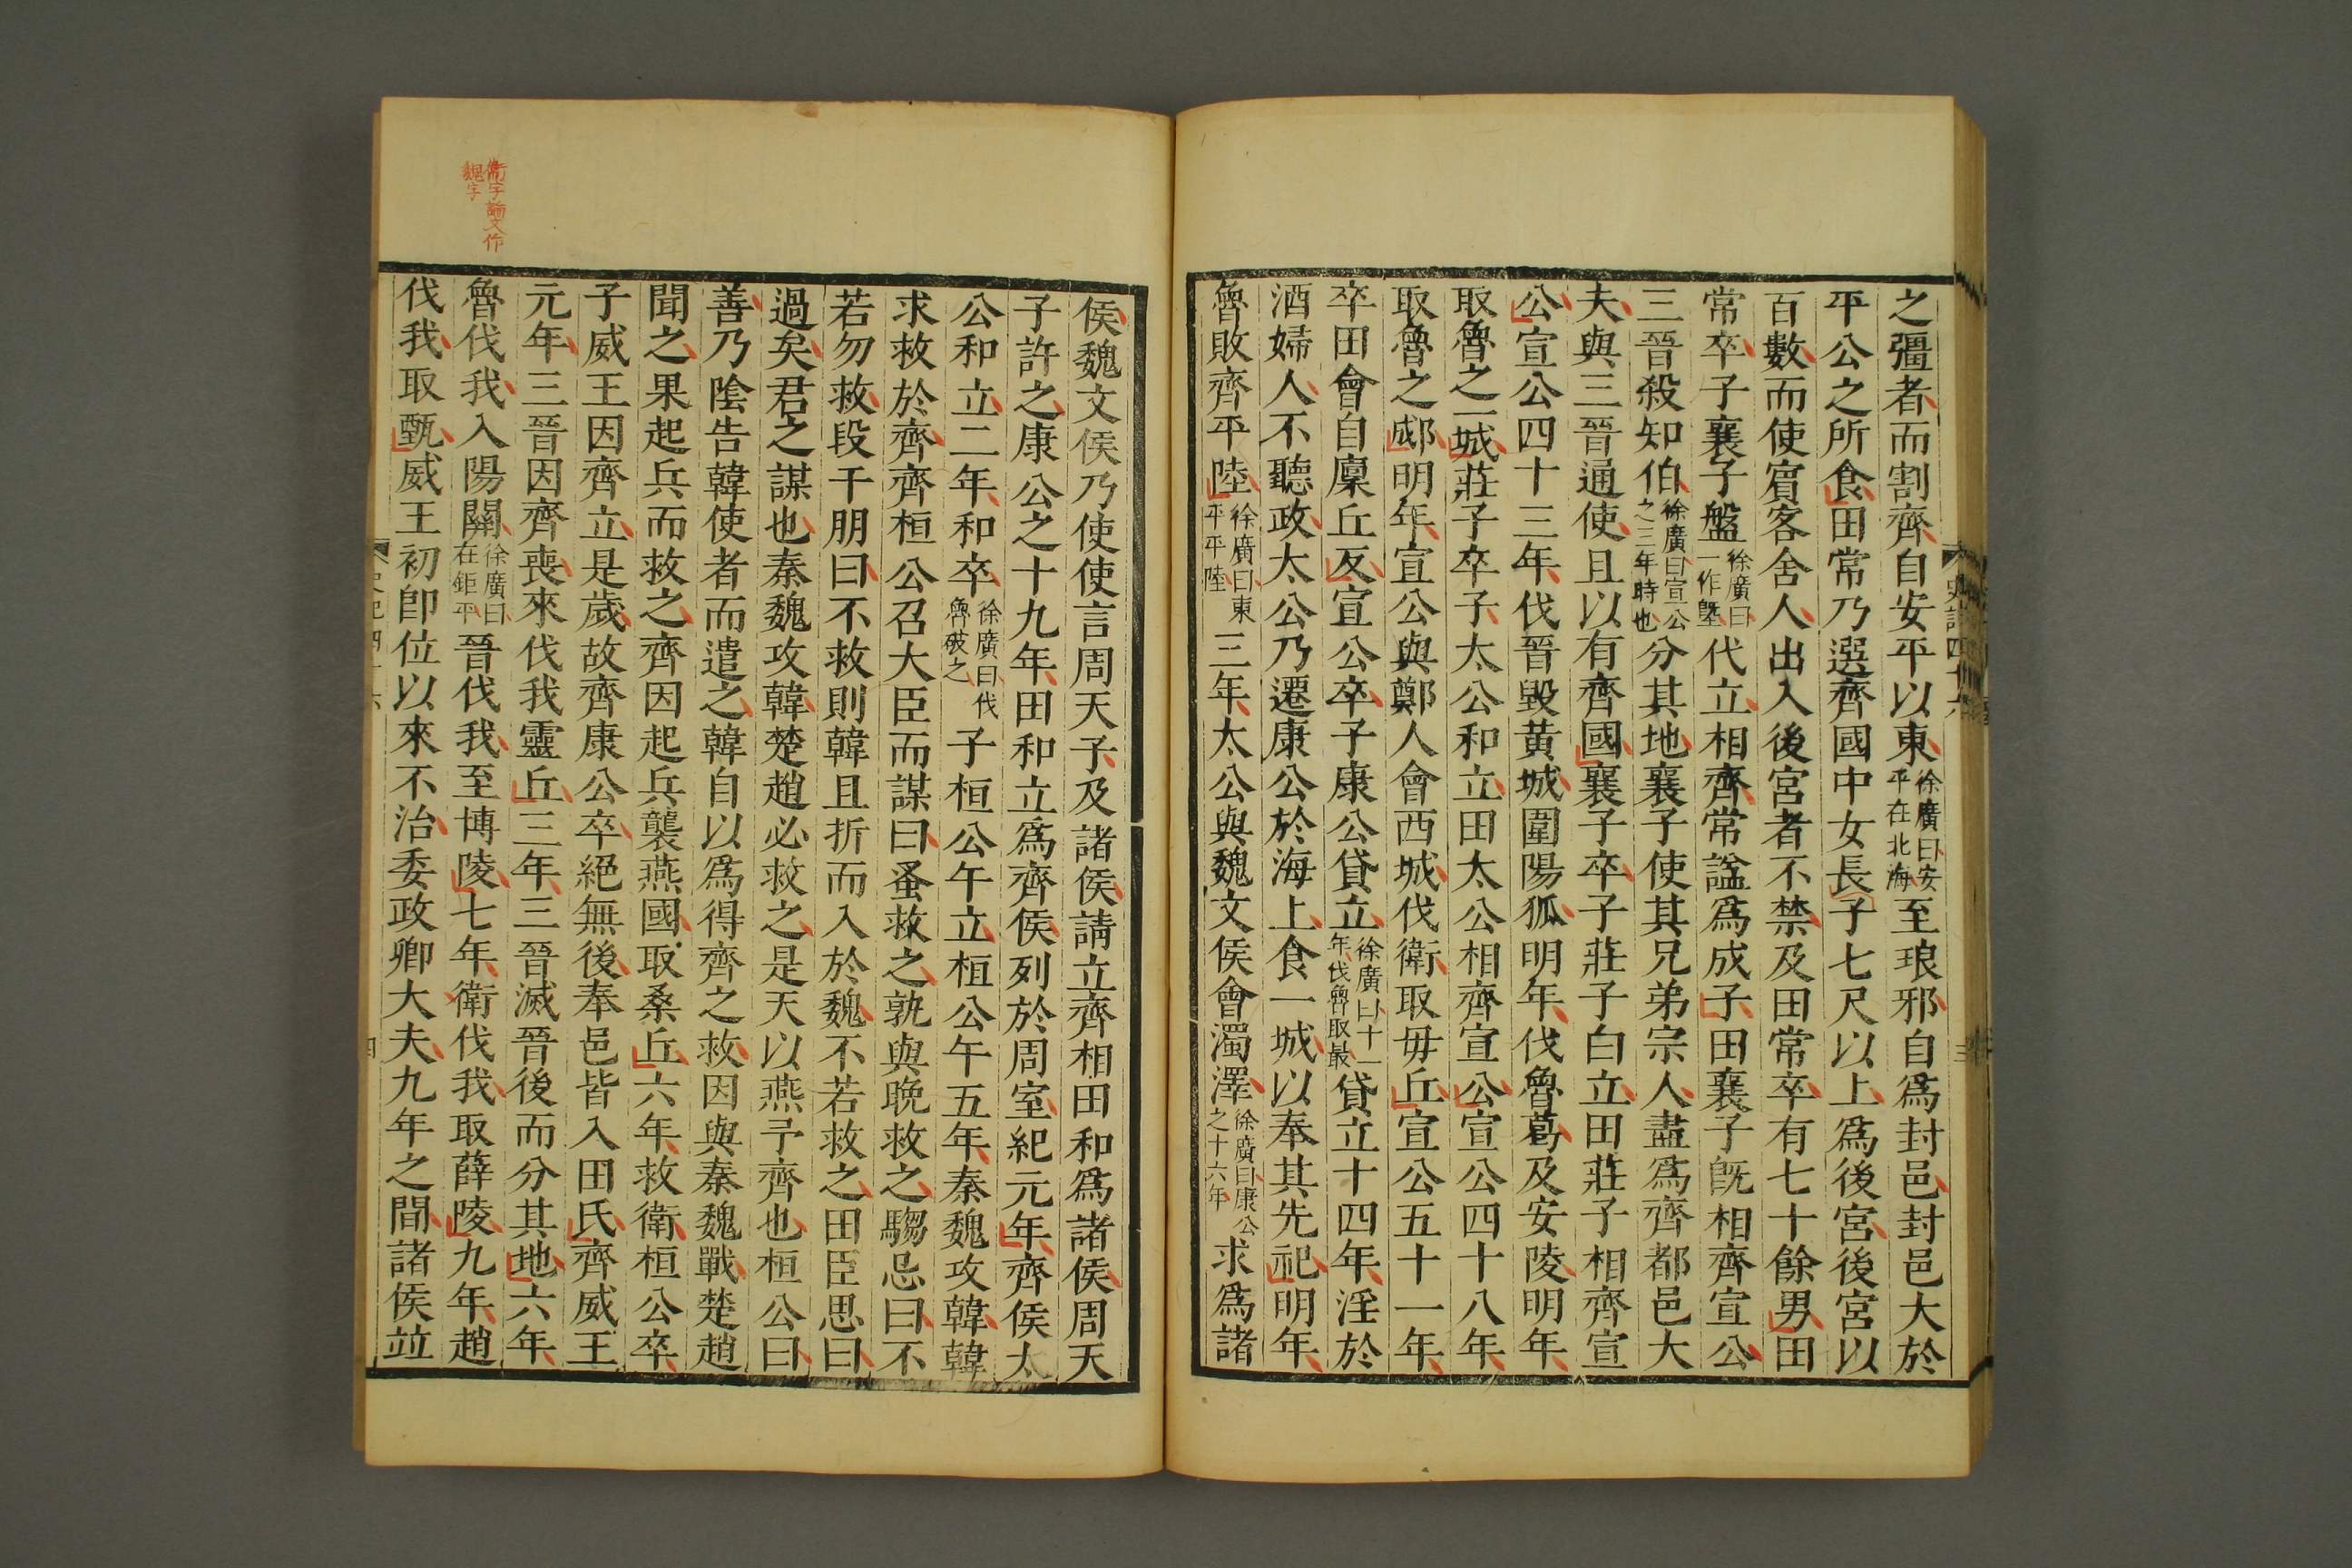 之彊者而割齊自安平以東徐廣曰安平在北海至琅邪自爲封邑封邑大於
平公之所食田常乃選齊國中女長子七尺以上爲後宮後宮以
百數而使賓客舍人出入後宮者不禁及田常卒有七十餘男田
常卒子襄子盤徐廣曰一作塈代立相齊常諡爲成子田襄子旣相齊宣公
三晉殺知伯徐廣曰宣公之三年時也分其地襄子使其兄弟宗人盡爲齊都邑大
夫與三晉通使且以有齊國襄子卒子莊子白立田莊子相齊宣
公宣公四十三年伐晉毀黃城圍陽狐明年伐魯葛及安陵明年
取魯之一城莊子卒子太公和立田太公相齊宣公宣公四十八年
取魯之郕明年宣公與鄭人會西城伐衛取毋丘宣公五十一年
卒田會自廩丘反宣公卒子康公貸立徐廣曰十一年伐魯取最貸立十四年淫於
酒婦人不聽政太公乃遷康公於海上食一城以奉其先祀明年
魯敗齊平陸徐廣曰東平平陸三年太公與魏文侯會濁澤徐廣曰康公之十六年求爲諸
史記四十六
三
侯魏文侯乃使使言周天子及諸侯請立齊相田和爲諸侯周天
子許之康公之十九年田和立爲齊侯列於周室紀元年齊侯太
公和立二年和卒徐廣曰伐魯破之子桓公午立桓公午五年秦魏攻韓韓
求救於齊齊桓公召大臣而謀曰蚤救之孰與晚救之騶忌曰不
若勿救段干朋曰不救則韓且折而入於魏不若救之田臣思曰
過矣君之謀也秦魏攻韓楚趙必救之是天以燕予齊也桓公曰
善乃陰告韓使者而遣之韓自以爲得齊之救因與秦魏戰楚趙
聞之果起兵而救之齊因起兵襲燕國取桑丘六年救衛桓公卒
子威王因齊立是歲故齊康公卒絕無後奉邑皆入田氏齊威王
元年三晉因齊喪來伐我靈丘三年三晉滅晉後而分其地六年
魯伐我入陽關徐廣曰在鉅平晉伐我至博陵七年衛伐我取薛陵九年趙
伐我取甄威王初卽位以來不治委政卿大夫九年之間諸侯竝
衛字論文作
魏字